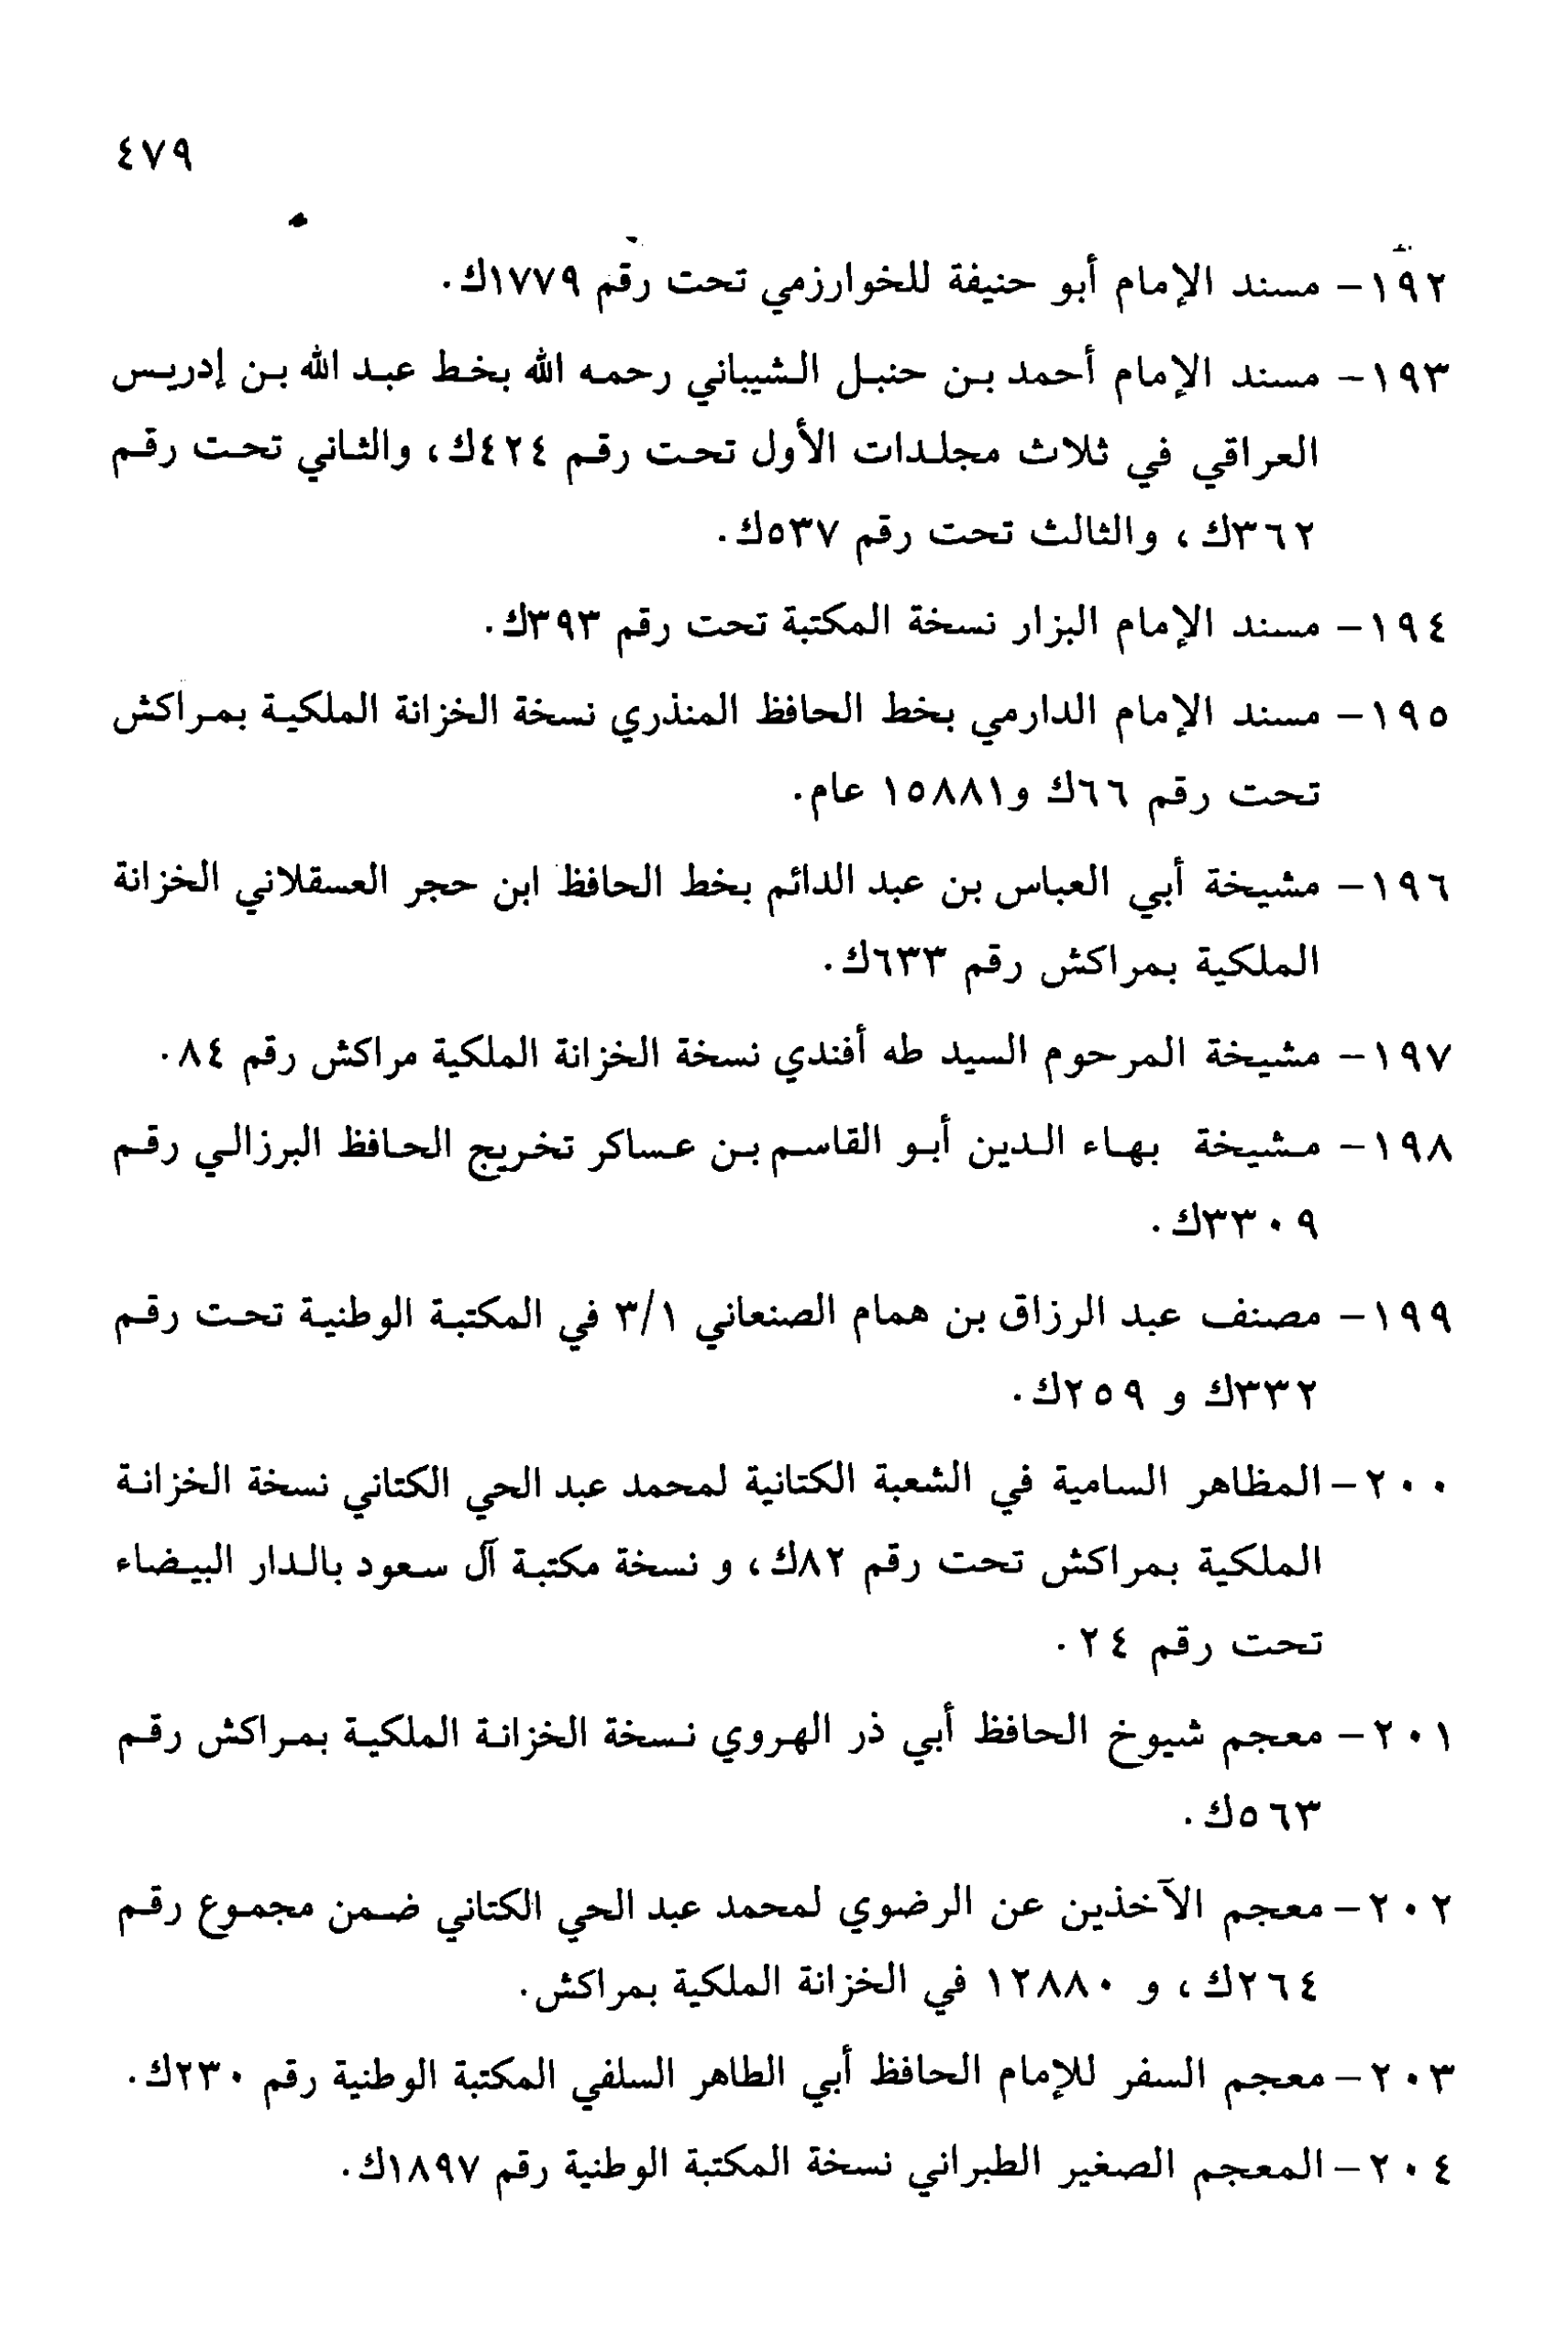 ٤٧٩
١٩٢- مسند الإمام أبو حنيفة للخوارزمي تحت رقم ١٧٧٩ك.
١٩٣- مسند الإمام أحمد بن حنبل الشيباني رحمه الله بخط عبد الله بن إدريس
العراقي في ثلاث مجلدات الأول تحت رقم ٤٢٤ك، والثاني تحت رقم
٣٦٢ك، والثالث تحت رقم ٥٣٧ك.
١٩٤- مسند الإمام البزار نسخة المكتبة تحت رقم ٣٩٣ك.
١٩٥- مسند الإمام الدارمي بخط الحافظ المنذري نسخة الخزانة الملكية بمراكش
تحت رقم ٦٦ك و١٥٨٨١ عام.
١٩٦- مشيخة أبي العباس بن عبد الدائم بخط الحافظ ابن حجر العسقلاني الخزانة
الملكية بمراكش رقم ٦٣٣ك.
١٩٧- مشيخة المرحوم السيد طه أفندي نسخة الخزانة الملكية مراكش رقم ٨٤.
١٩٨- مشيخة بهاء الدين أبو القاسم بن عساكر تخريج الحافظ البرزالي رقم
٣٣٠٩ك.
١٩٩- مصنف عبد الرزاق بن همام الصنعاني ٣/١ في المكتبة الوطنية تحت رقم
٣٣٢ك و ٢٥٩ك.
٢٠٠- المظاهر السامية في الشعبة الكتانية لمحمد عبد الحي الكتاني نسخة الخزانة
الملكية بمراكش تحت رقم ٨٢ك، و نسخة مكتبة آل سعود بالدار البيضاء
تحت رقم ٢٤.
٢٠١- معجم شيوخ الحافظ أبي ذر الهروي نسخة الخزانة الملكية بمراكش رقم
٥٦٣ك.
٢٠٢- معجم الآخذين عن الرضوي لمحمد عبد الحي الكتاني ضمن مجموع رقم
٢٦٤ك، و ١٢٨٨٠ في الخزانة الملكية بمراكش.
٢٠٣- معجم السفر للإمام الحافظ أبي الطاهر السلفي المكتبة الوطنية رقم ٢٣٠ك.
٢٠٤- المعجم الصغير الطبراني نسخة المكتبة الوطنية رقم ١٨٩٧ك.